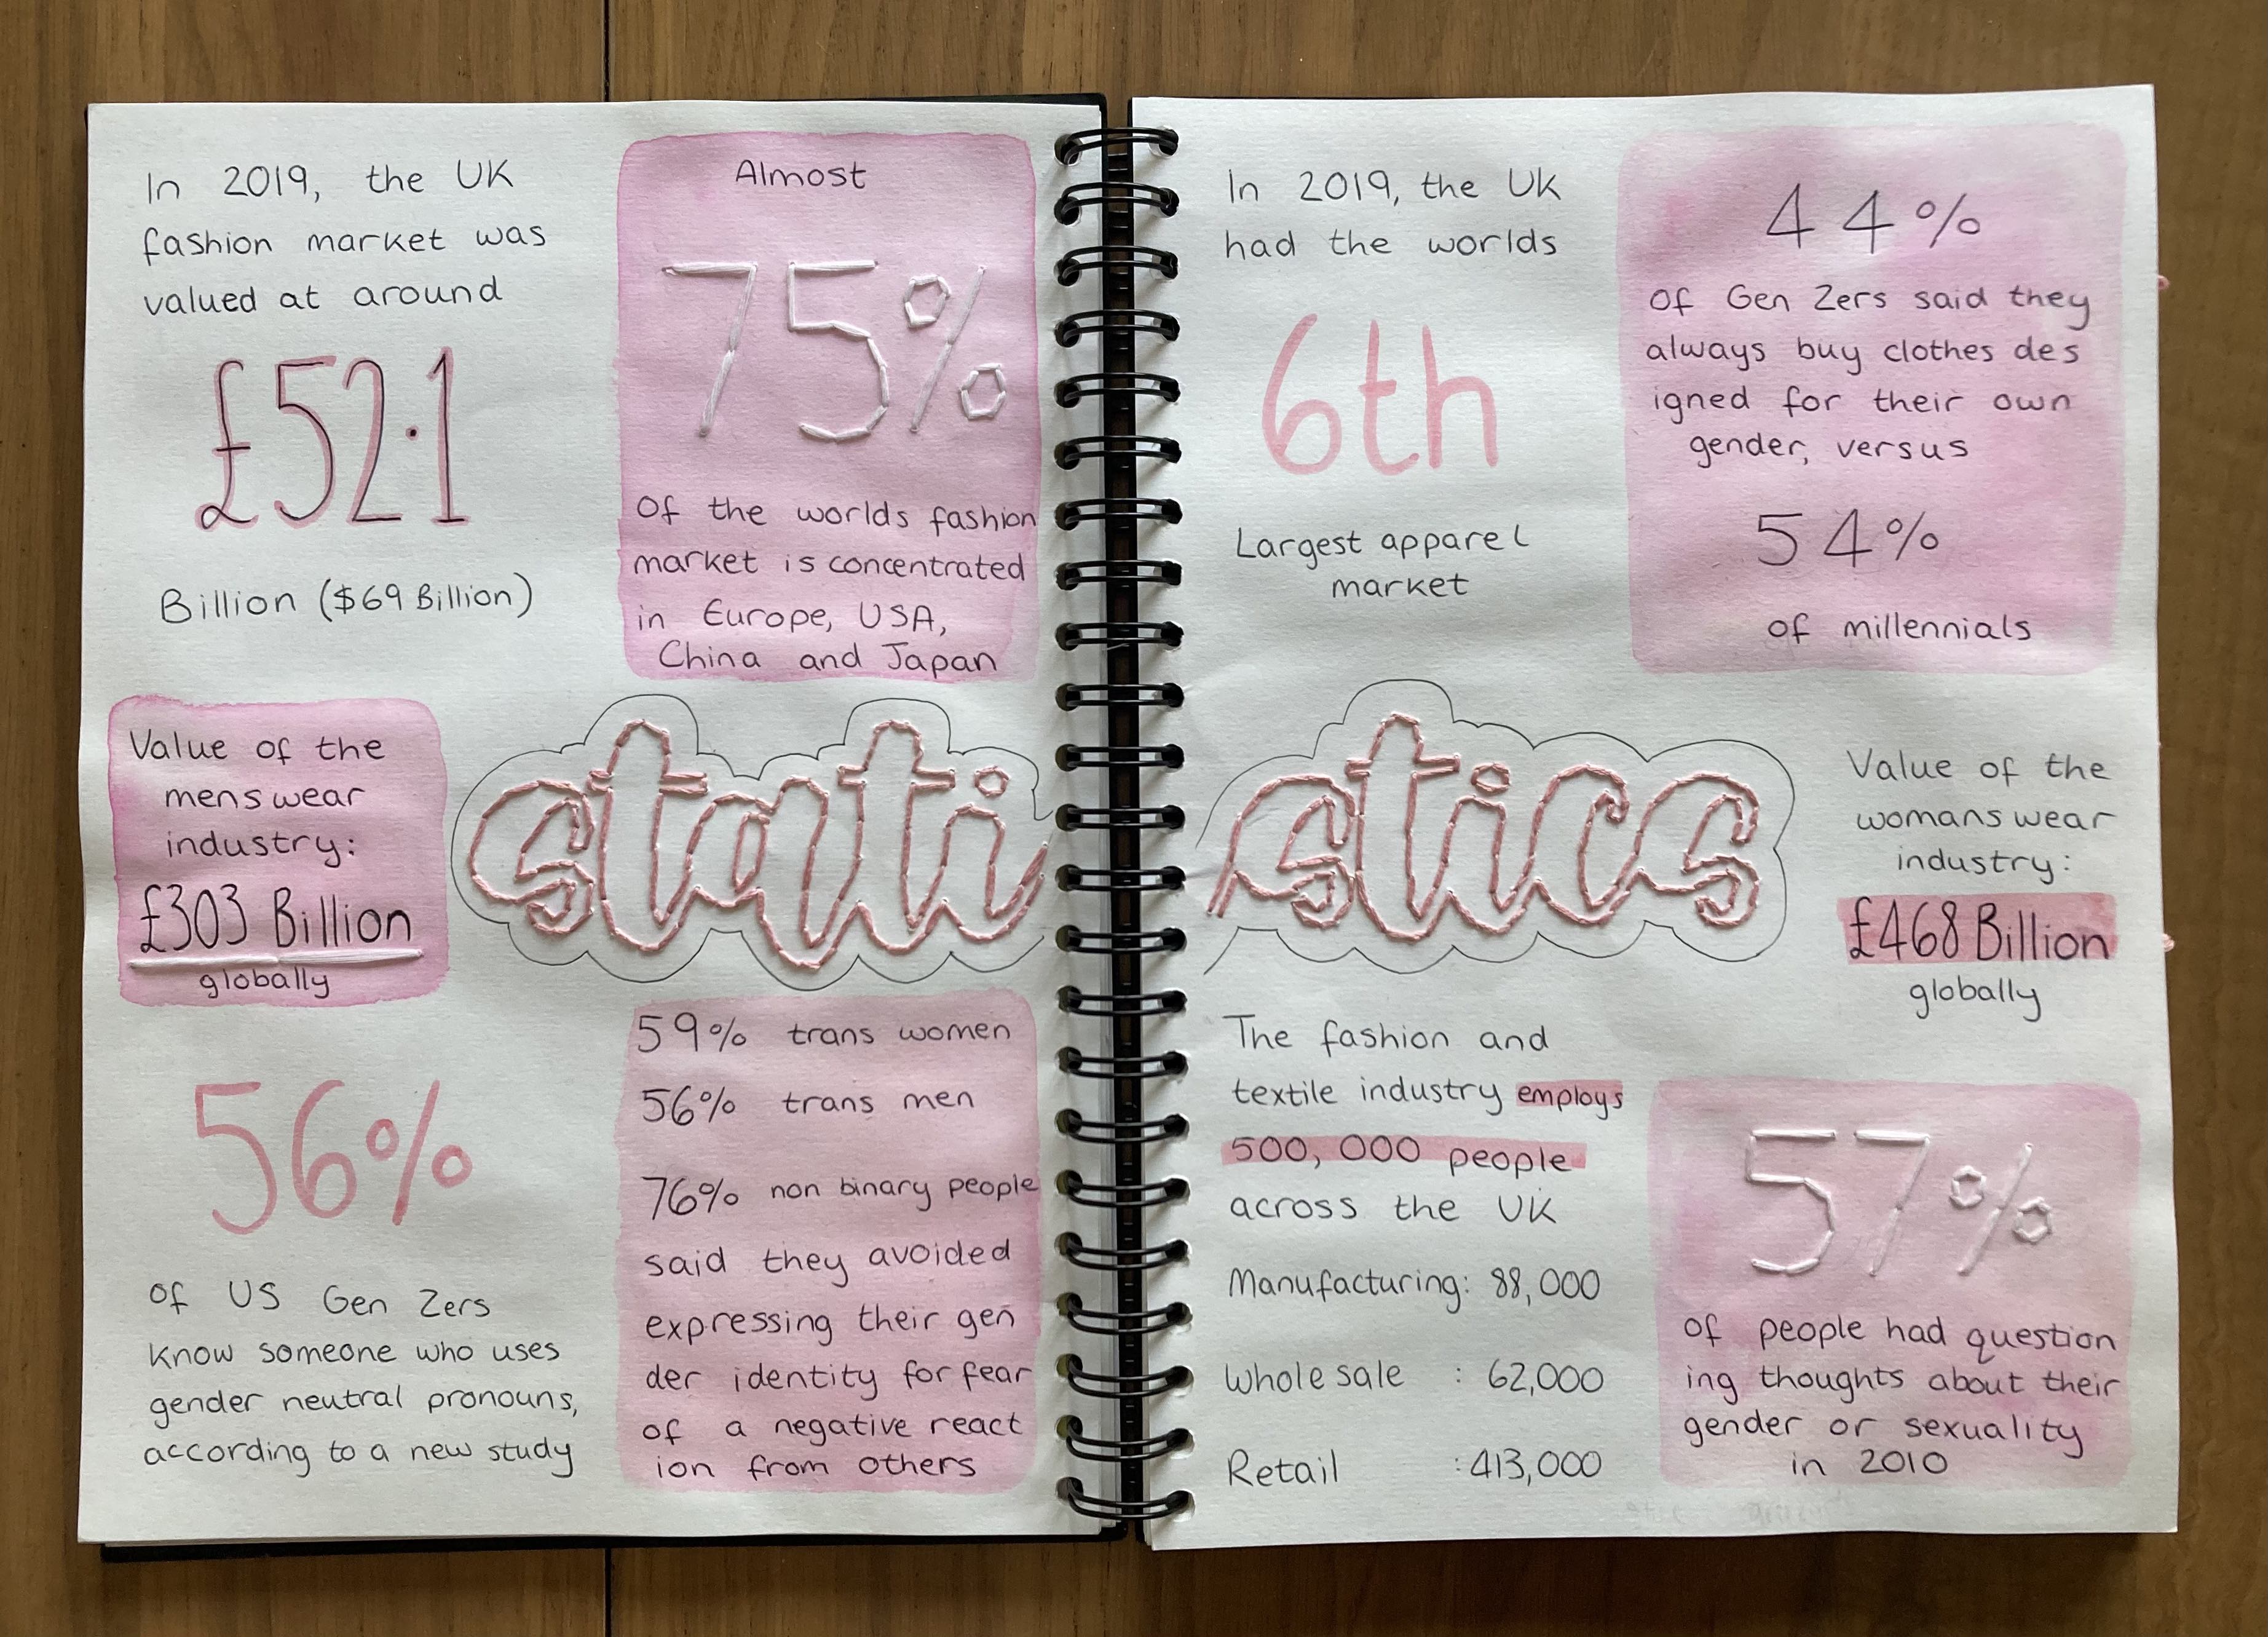 In 2019, the UK
fashion market was
valued at around
£52.1
Billion ($69 Billion)
Almost
75%
of the worlds fashion
market is concentrated
in Europe, USA,
China and Japan
Value of the
mens wear
industry:
£303 Billion
globally
stati
56%
of US Gen Zers
know someone who uses
gender neutral pronouns,
according to a new study
59% trans women
56% trans men
76% non binary people
said they avoided
expressing their gen
der identity for fear
of a negative react
ion from others
In 2019, the UK
had the worlds
6th
Largest apparel
market
44%
of Gen Zers said they
always buy clothes des
igned for their own
gender, versus
54%
of millennials
stics
Value of the
womans wear
industry:
£468 Billion
globally
The fashion and
textile industry employs
500,000 people
across the UK
Manufacturing: 88,000
Whole sale : 62,000
Retail : 413,000
57%
of people had question
ing thoughts about their
gender or sexuality
in 2010